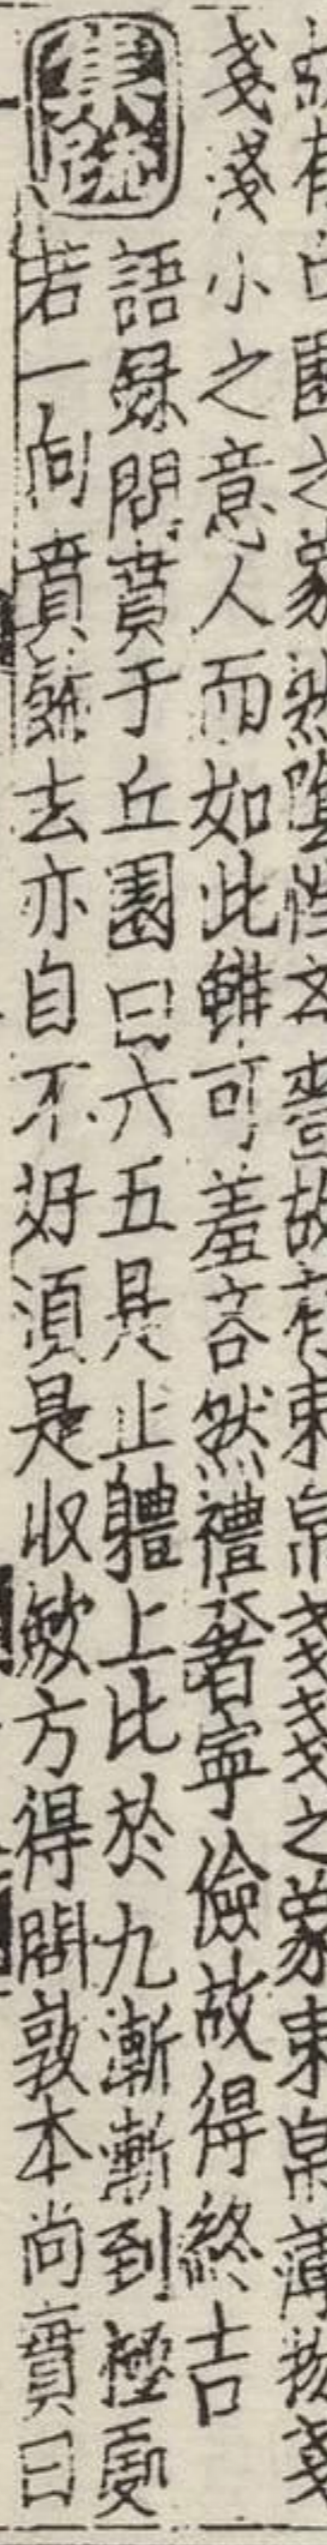 故有丘園之象然隂性吝嗇故有束帛戔戔之象束帛薄物戔
戔淺小之意人而如此雖可羞吝然禮奢寧儉故得終吉
集疏
語録問賁于丘園曰六五是止體上比於九漸漸到極處
若一向賁飾去亦自不好須是收斂方得問敦本尚實曰